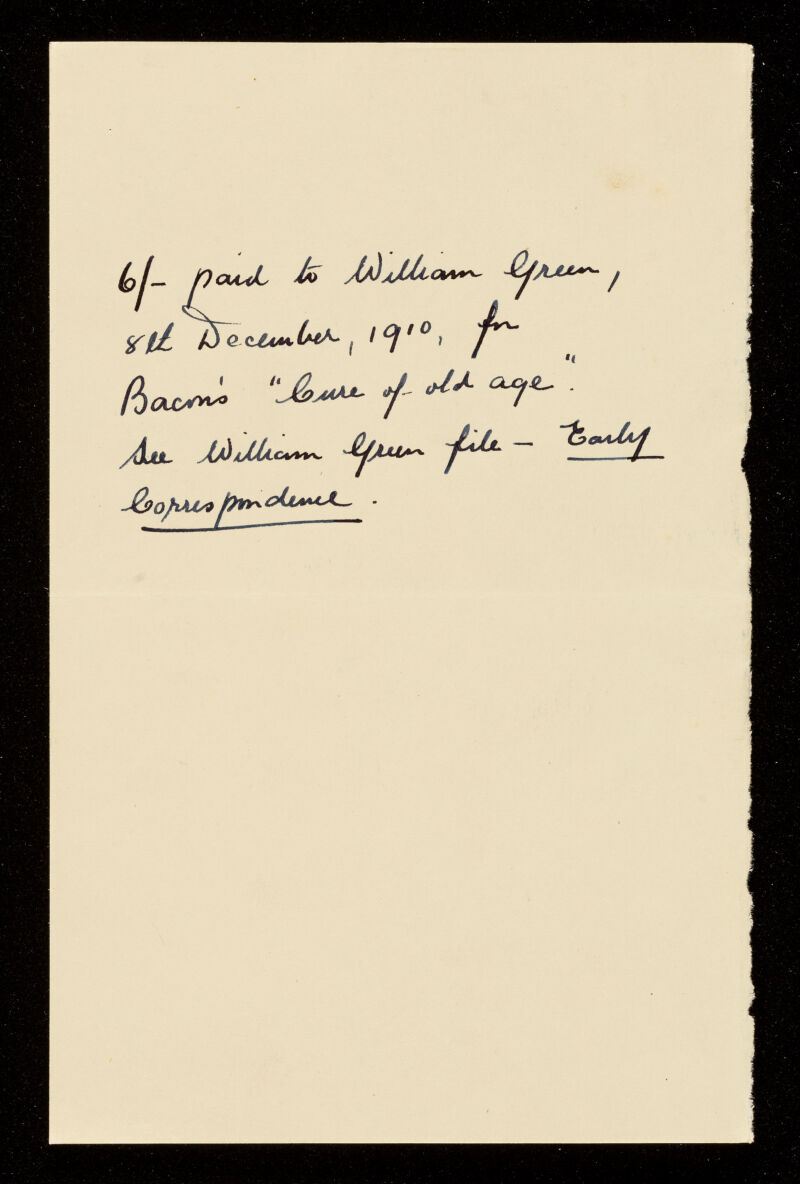 6/- paid to William Green,
8th December, 1910, for
Bacon's "Cure of old age".
See William Green file - Early
Correspondence.